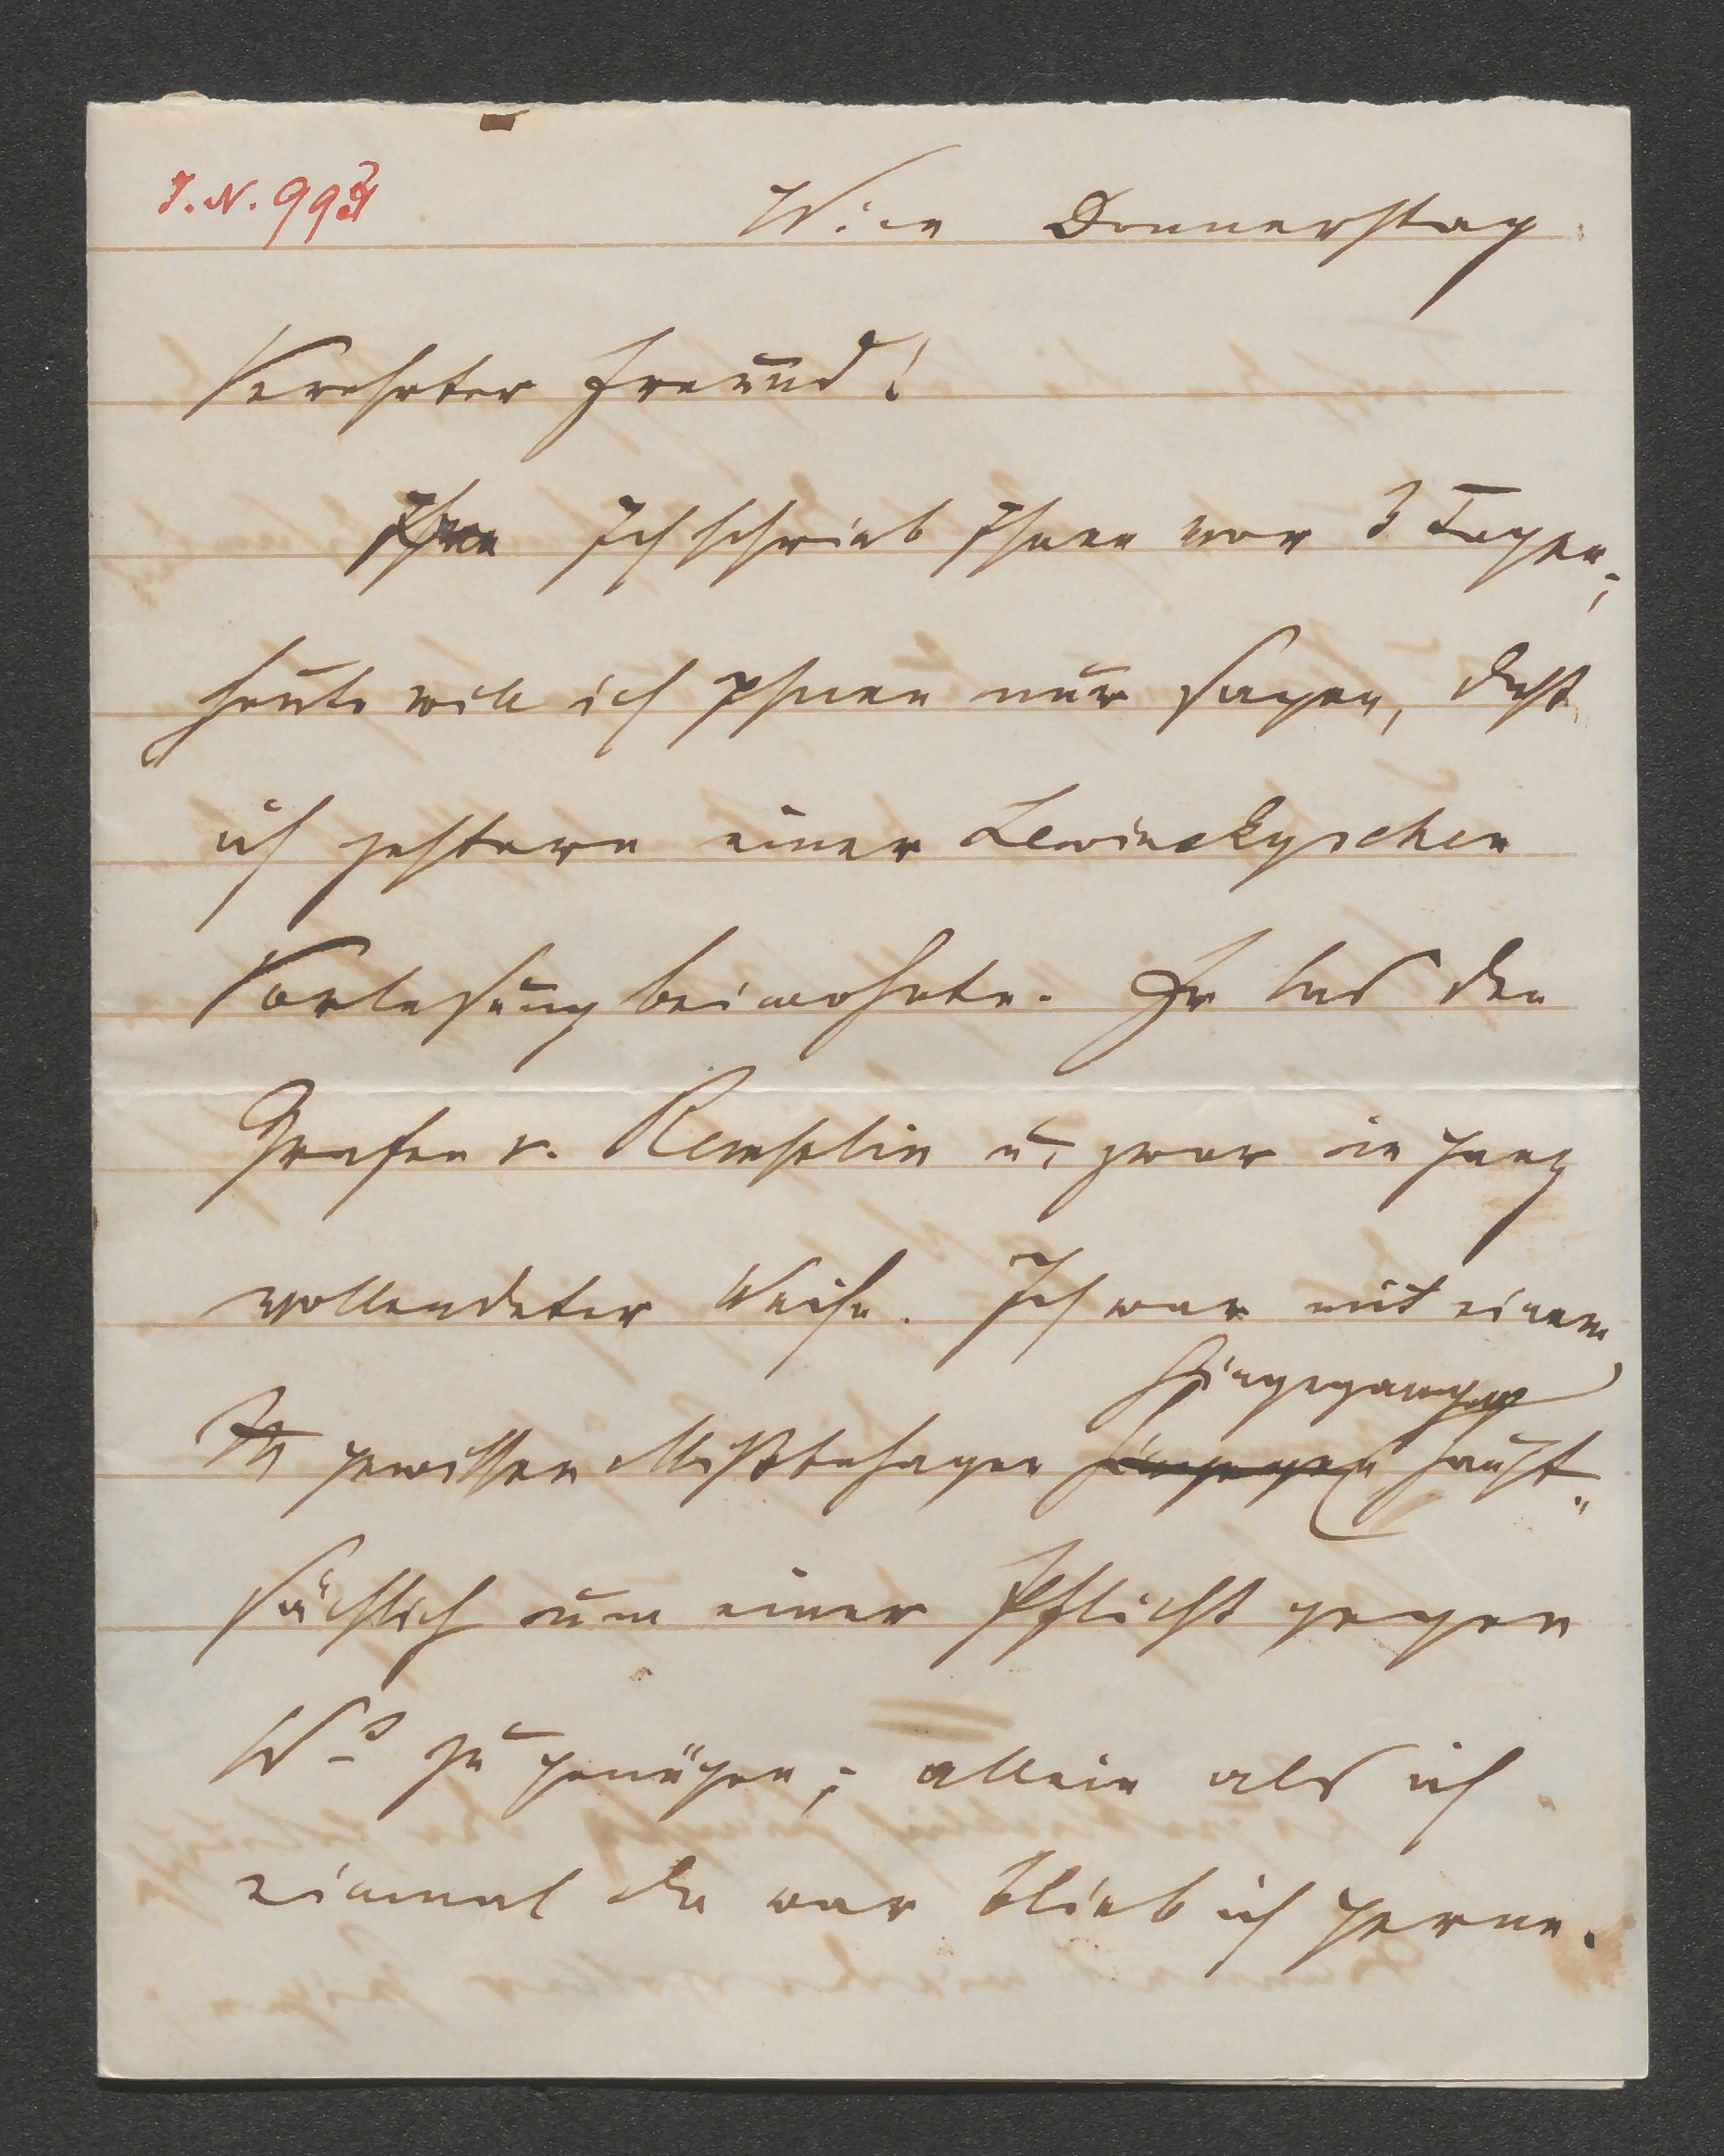 J. N. 993
Wien Donnerstag
Verehrter Freund!
Ich schrieb Ihnen vor 3 Tagen;
heute will ich Ihnen nur sagen, daß
ich gestern einer Lewinskyschen
Vorlesung beiwohnte. Er las den
Grafen v. Remplin u. zwar in ganz
vollendeter Weise. Ich war mit einem
hingegangen
gewissen Mißbehagen haupt-
sächlich um einer Pflicht gegen
zu genügen; allein als ich
einmal da war blieb ich gerne.